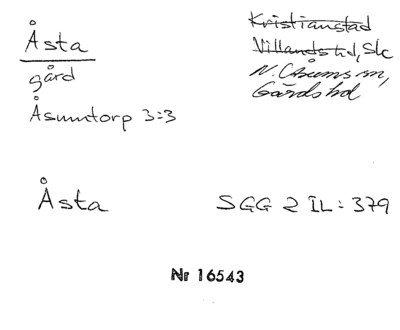 Åsta
gård
Åsumtorp 3:3
Kristianstad
Villands hd, Skc
N. Åsums sn,
Gärds hd
Åsta
SGG 2 IL: 379
Nr 16543